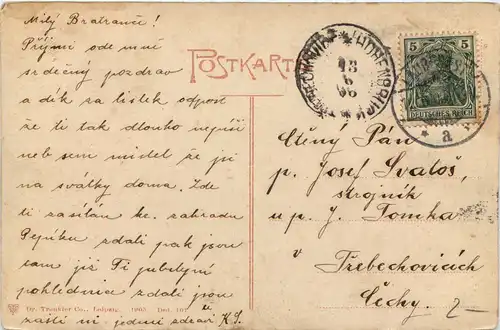 Milý Bratranče!
Přijmi ode mně
srdečný pozdrav
a dík za lístek, odpust
že ti tak dlouho nepíši
neb sem midel že jsi
na svátky doma. Zde
ti zasílám ke. zahradu
Pepíku zdali pak jsou
tam již Ti jubilejní
pohlednice zdali jsou
zašli mi jednu zdraví K.S.
POSTKARTE
HOHENBRUCK
TŘEBECHOVICE
13
6
06
5 5
DEUTSCHES REICH
* a
Ctěný Pán
p. Josef Svatoš,
strojník
u p. J. Tomka
v
Třebechovicích
Čechy.
2-
Dr. Trenkler Co., Leipzig. 1905.